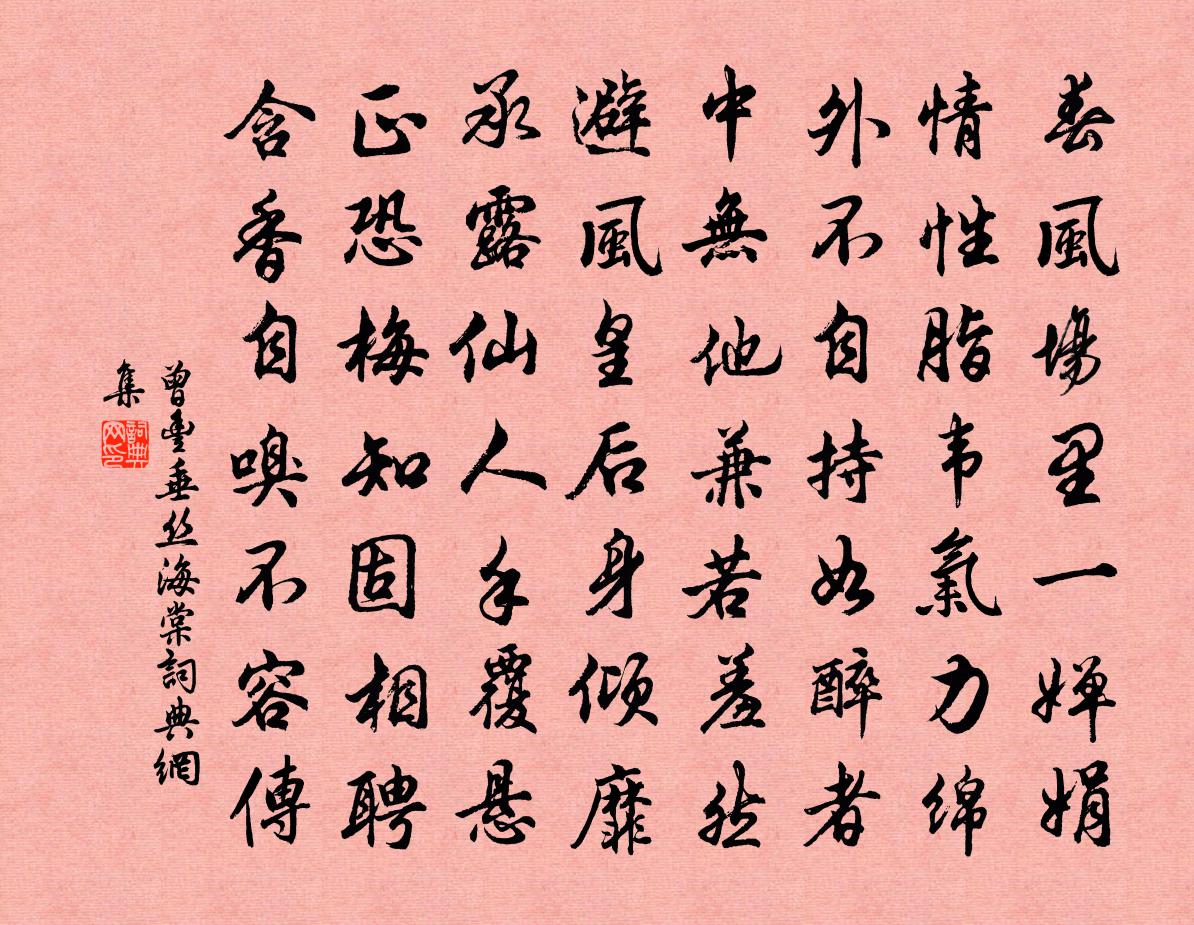 春風場里一嬋娟
情性脂韦氣力綿
外不自持如醉者
中無他兼若羞然
避風皇后身傾靡
承露仙人手覆悬
正恐梅知固相聘
含香自嗅不容傳
曾豐垂丝海棠詞典網
集
詞典
网印